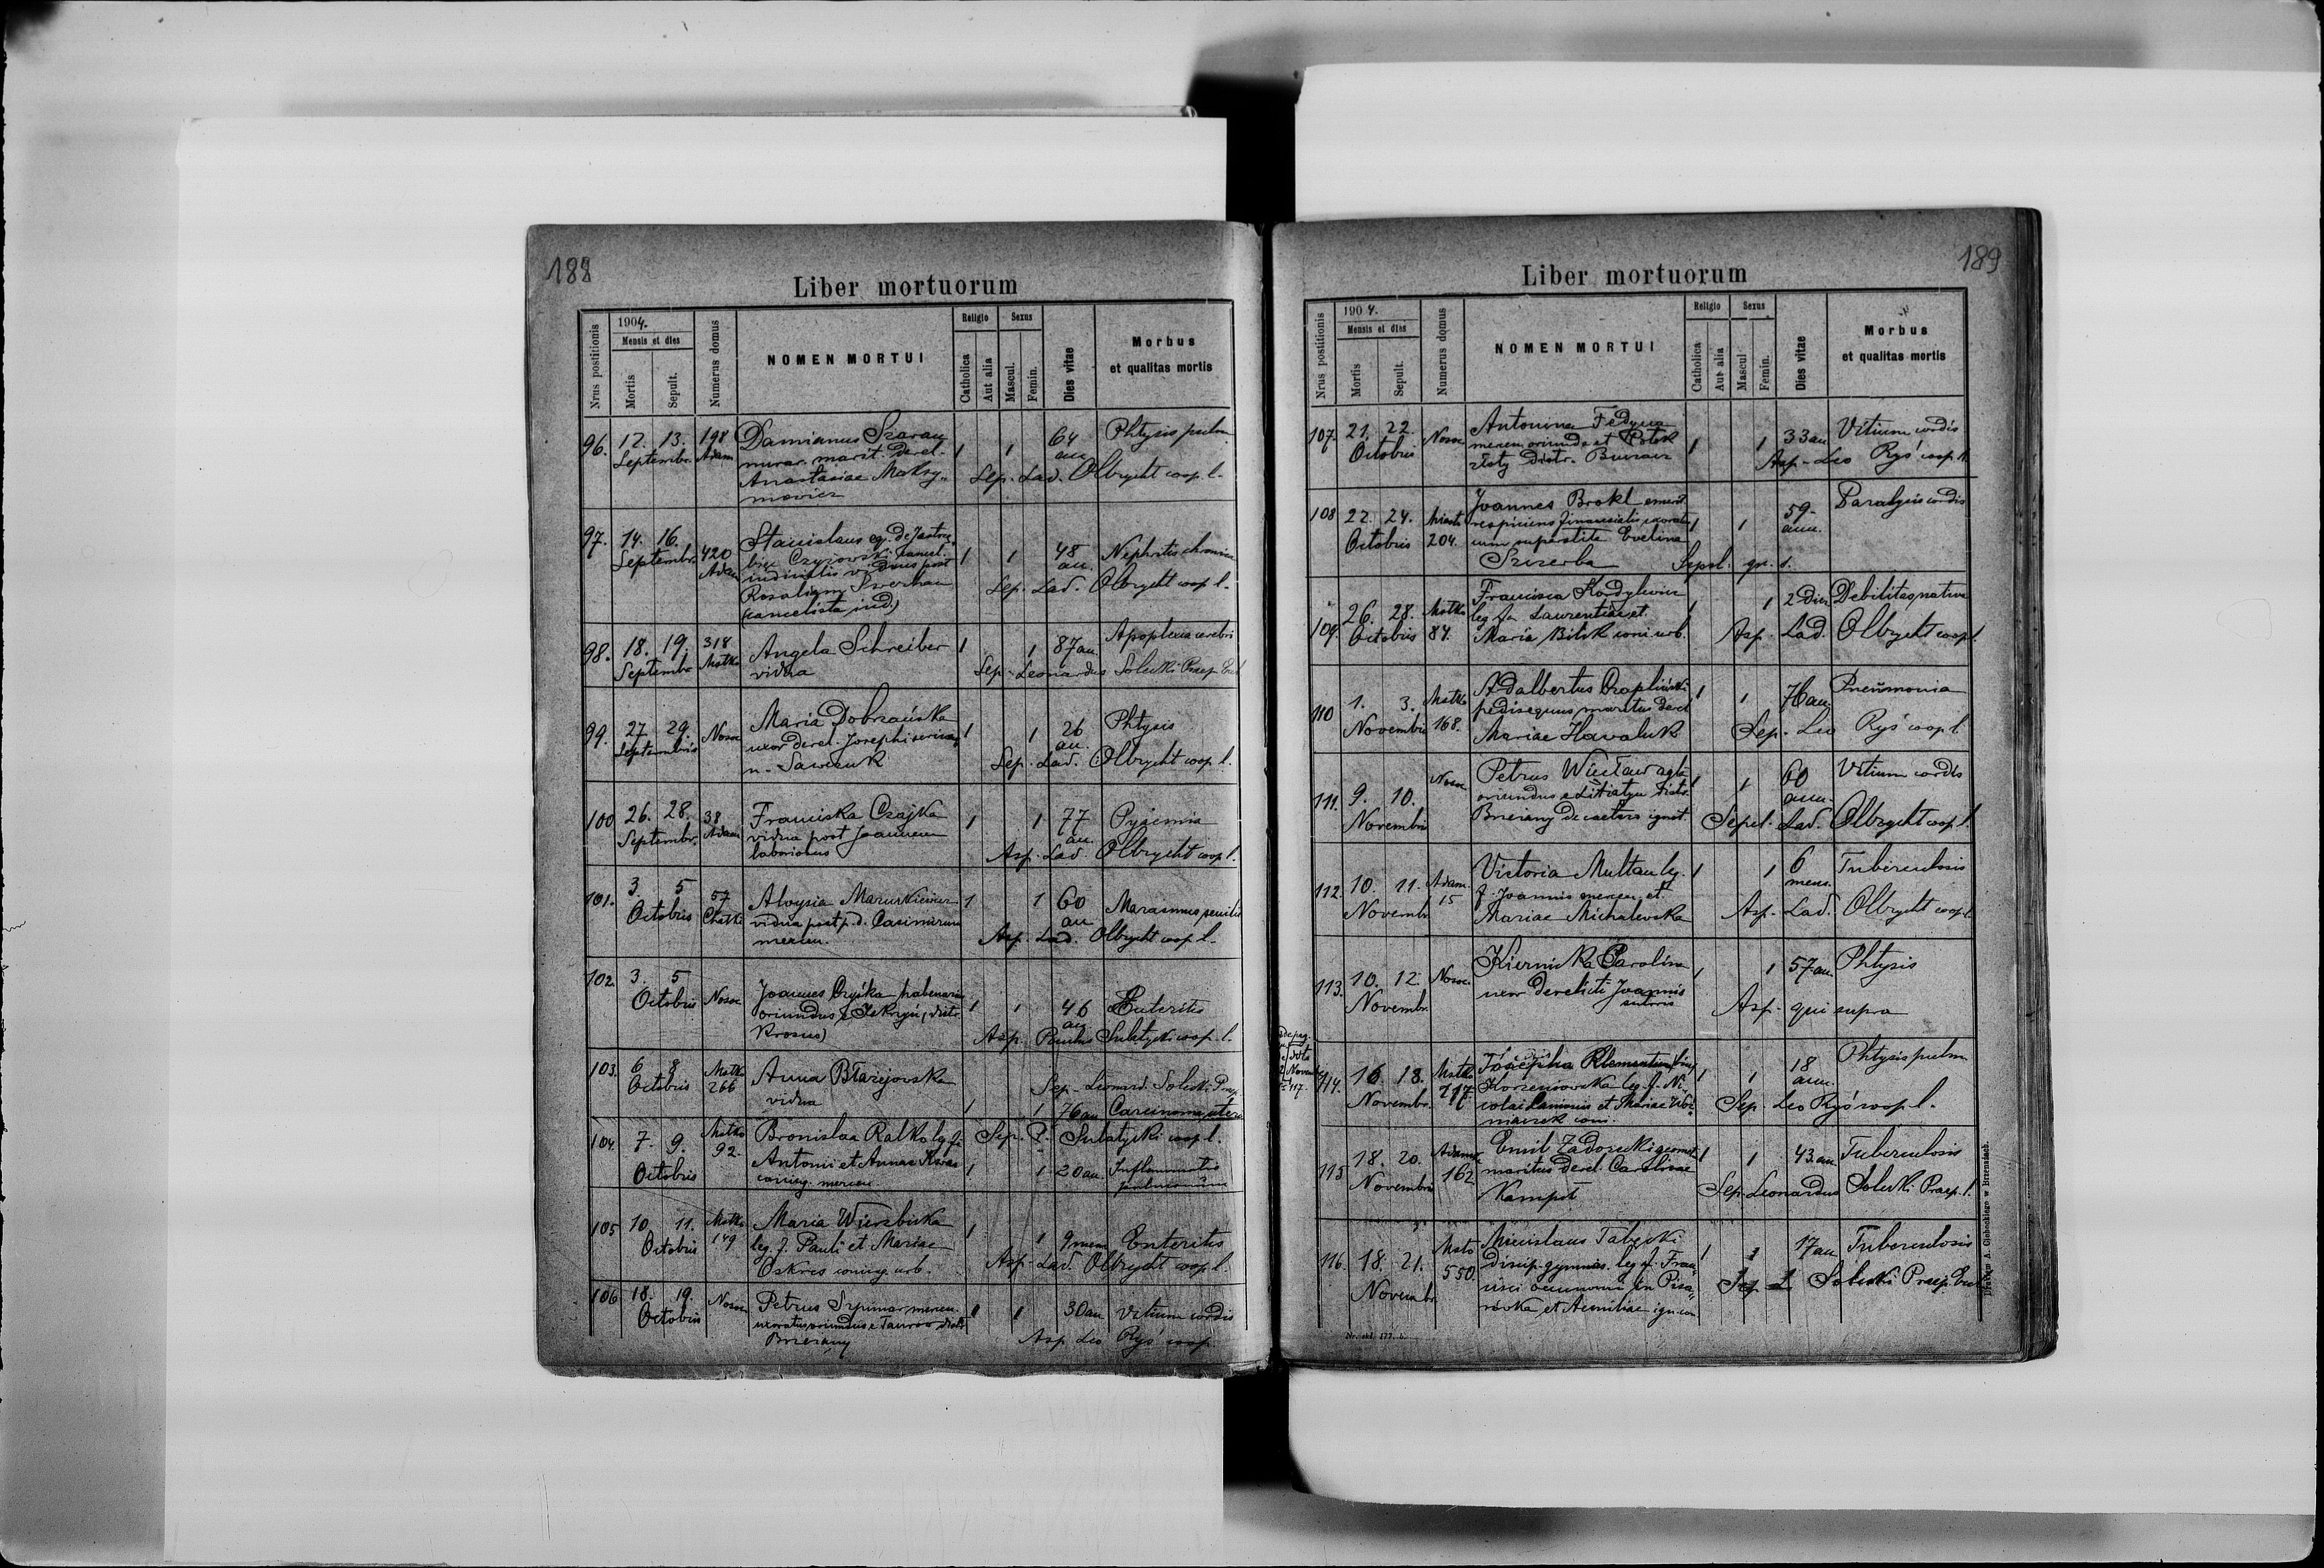 188
Liber mortuorum
Nrus postitionis
1904.
Mensis et dies
Mortis
Sepult.
Numerus domus
NOMEN MORTUI
Religio
Catholica
Aut alia
Sexus
Mascul.
Femin.
Dies vitae
Morbus
et qualitas mortis
96. 12. 13. 198 Damianus Szarau 1 1 64 Phtysis pulm
Septembr. Adam murar. marit. derel. an
Anastasiae Maksy„ Sep. Lad. Olbrycht coop. l.
mowicz
97. 14. 16. 420 Stanislaus eq. de Jastrzę 1 1 48 Nephritis chronica
Septembr. Adam biec Czyżowski an.
viduus post Sep. Lad. Olbrycht coop l.
Rosaliam
(cancelista jud.)
98. 18. 19. 318 Angela Schreiber 1 1 87 an. Apoplexia cerebri
Septembr Mstko vidua Sep. Leonardus Solecki Praep.
99. 27 29. Nosoc Maria Dobrzańska 1 1 26 Phtysis
Septembris uxor derel. Josephi an.
n. Sawczuk Sep. Lad. Olbrycht coop l.
100 26. 28. 38 Franciska Czajka 1 1 77 Pyaemia
Septembr. Adam vidua post Joannem an.
laboriosus Asp. Lad. Olbrycht coop l.
101. 3. 5 57 Aloysia Mazurkiewicz 1 1 60 Marasmus senilis
Octobris vidua post p. d. Casimirum an
mercen. Asp. Lad. Olbrycht coop l.
102. 3. 5 Nosoc Joannes 1 1 46 Enteritis
Octobris oriundus e distr. an
Krosno) Asp. Paulus Sulatycki coop. l.
103. 6 8 Mstko Anna Błażejowska Sep. Leonard. Solecki Praep
Octobris 266 vidua 1 1 76 an Carcinoma uteri
104. 7. 9. Mstko Bronislaa Ralko leg. f. Sep. P. Sulatycki coop l.
Octobris 92. Antonii et Annae 1 1 20 an. Inflammatio
coniug. mercen. pulmonum
105 10. 11. Mstko Maria Wierzbicka 1 1 9 mens Enteritis
Octobris 149 leg. f. Pauli et Mariae
Oskres coniug. urb. Asp. Lad. Olbrycht coop l.
106 18. 19. Nosoc Petrus Szpunar mercen. 1 1 30 an Vitium cordis
Octobris uxoratus oriundus e Taurow distr.
Brzeżany Asp. Leo Ryś coop
189
Liber mortuorum
Nrus postitionis
1904.
Mensis et dies
Mortis
Sepult.
Numerus domus
NOMEN MORTUI
Religio
Catholica
Aut alia
Sexus
Mascul
Femin.
Dies vitae
Morbus
et qualitas mortis
107. 21. 22. Nosoc Antonina Fedyna 1 1 33 an Vitium cordis
Octobris mercen. oriunda et Potok
złoty Distr. Buczacz Asp. Leo Ryś coop. l.
108 22. 24. Miasto Joannes Brokl emerit 1 1 59. Paralysis cordis
Octobris 204. respiciens financialis uxorat. ann.
cum superstite Evelina
Szczerba Sepel. gr. c.
109. 26. 28. Mstko Francisca Kordylewicz 1 1 2 dies Debilitas nativa
Octobris 84. leg. fa Laurentiae et
Maria Bilik coni urb. Asp. Lad. Olbrycht coop l.
110 1. 3. Mstko Adalbertus Czapliński 1 1 76 an. Pneumonia
Novembris 168. pedisequus maritus derel
Mariae Hawaluk Sep. Leo Ryś coop l
111. 9. 10. Nosoc Petrus 1 1 60 Vitium cordis
Novembri oriundus e Litiatyn distr. ann.
Brzeżany de caetero ignot. Sepel. Lad. Olbrycht coop l.
112. 10. 11. Adam. Victoria Multan leg. 1 1 6 Tuberculosis
Novembr. 15 f. Joannis mercen. et mens.
Mariae Michalewska Asp. Lad. Olbrycht coop l
113. 10. 12. Nosoc. Kiernicka Carolina 1 1 57. an. Phtysis
Novembr. uxor derelicti Joannis
sutoris Asp. qui supra
114. 16. 18. Mstko Josepha Klementina 1 1 18 Phtysis pulm
Novembr. 217 Korzeniowska leg. f. Ni„ ann.
colai et Mariae Sep. Leo Ryś coop l.
coni.
115 18. 20. Adamk. Emil Zadorecki geomet. 1 1 43. an Tuberculosis
Novembri 162 maritus derel. Carolinae
Kampst Sep. Leonardus Solecki Praep. l.
116. 18. 21. Msto Miecislaus Tabęcki 1 1 17 an Tuberculosis
Novembr. 550. discip. gymnas. leg. f. Fran„
cisci oeconomi in Pisa„ Sep L Solecki Praep.
rówka et Aemiliae ign. con
Nr. skł. 177. b.
Drukiem A. Ciebockiego w Brzezanach.